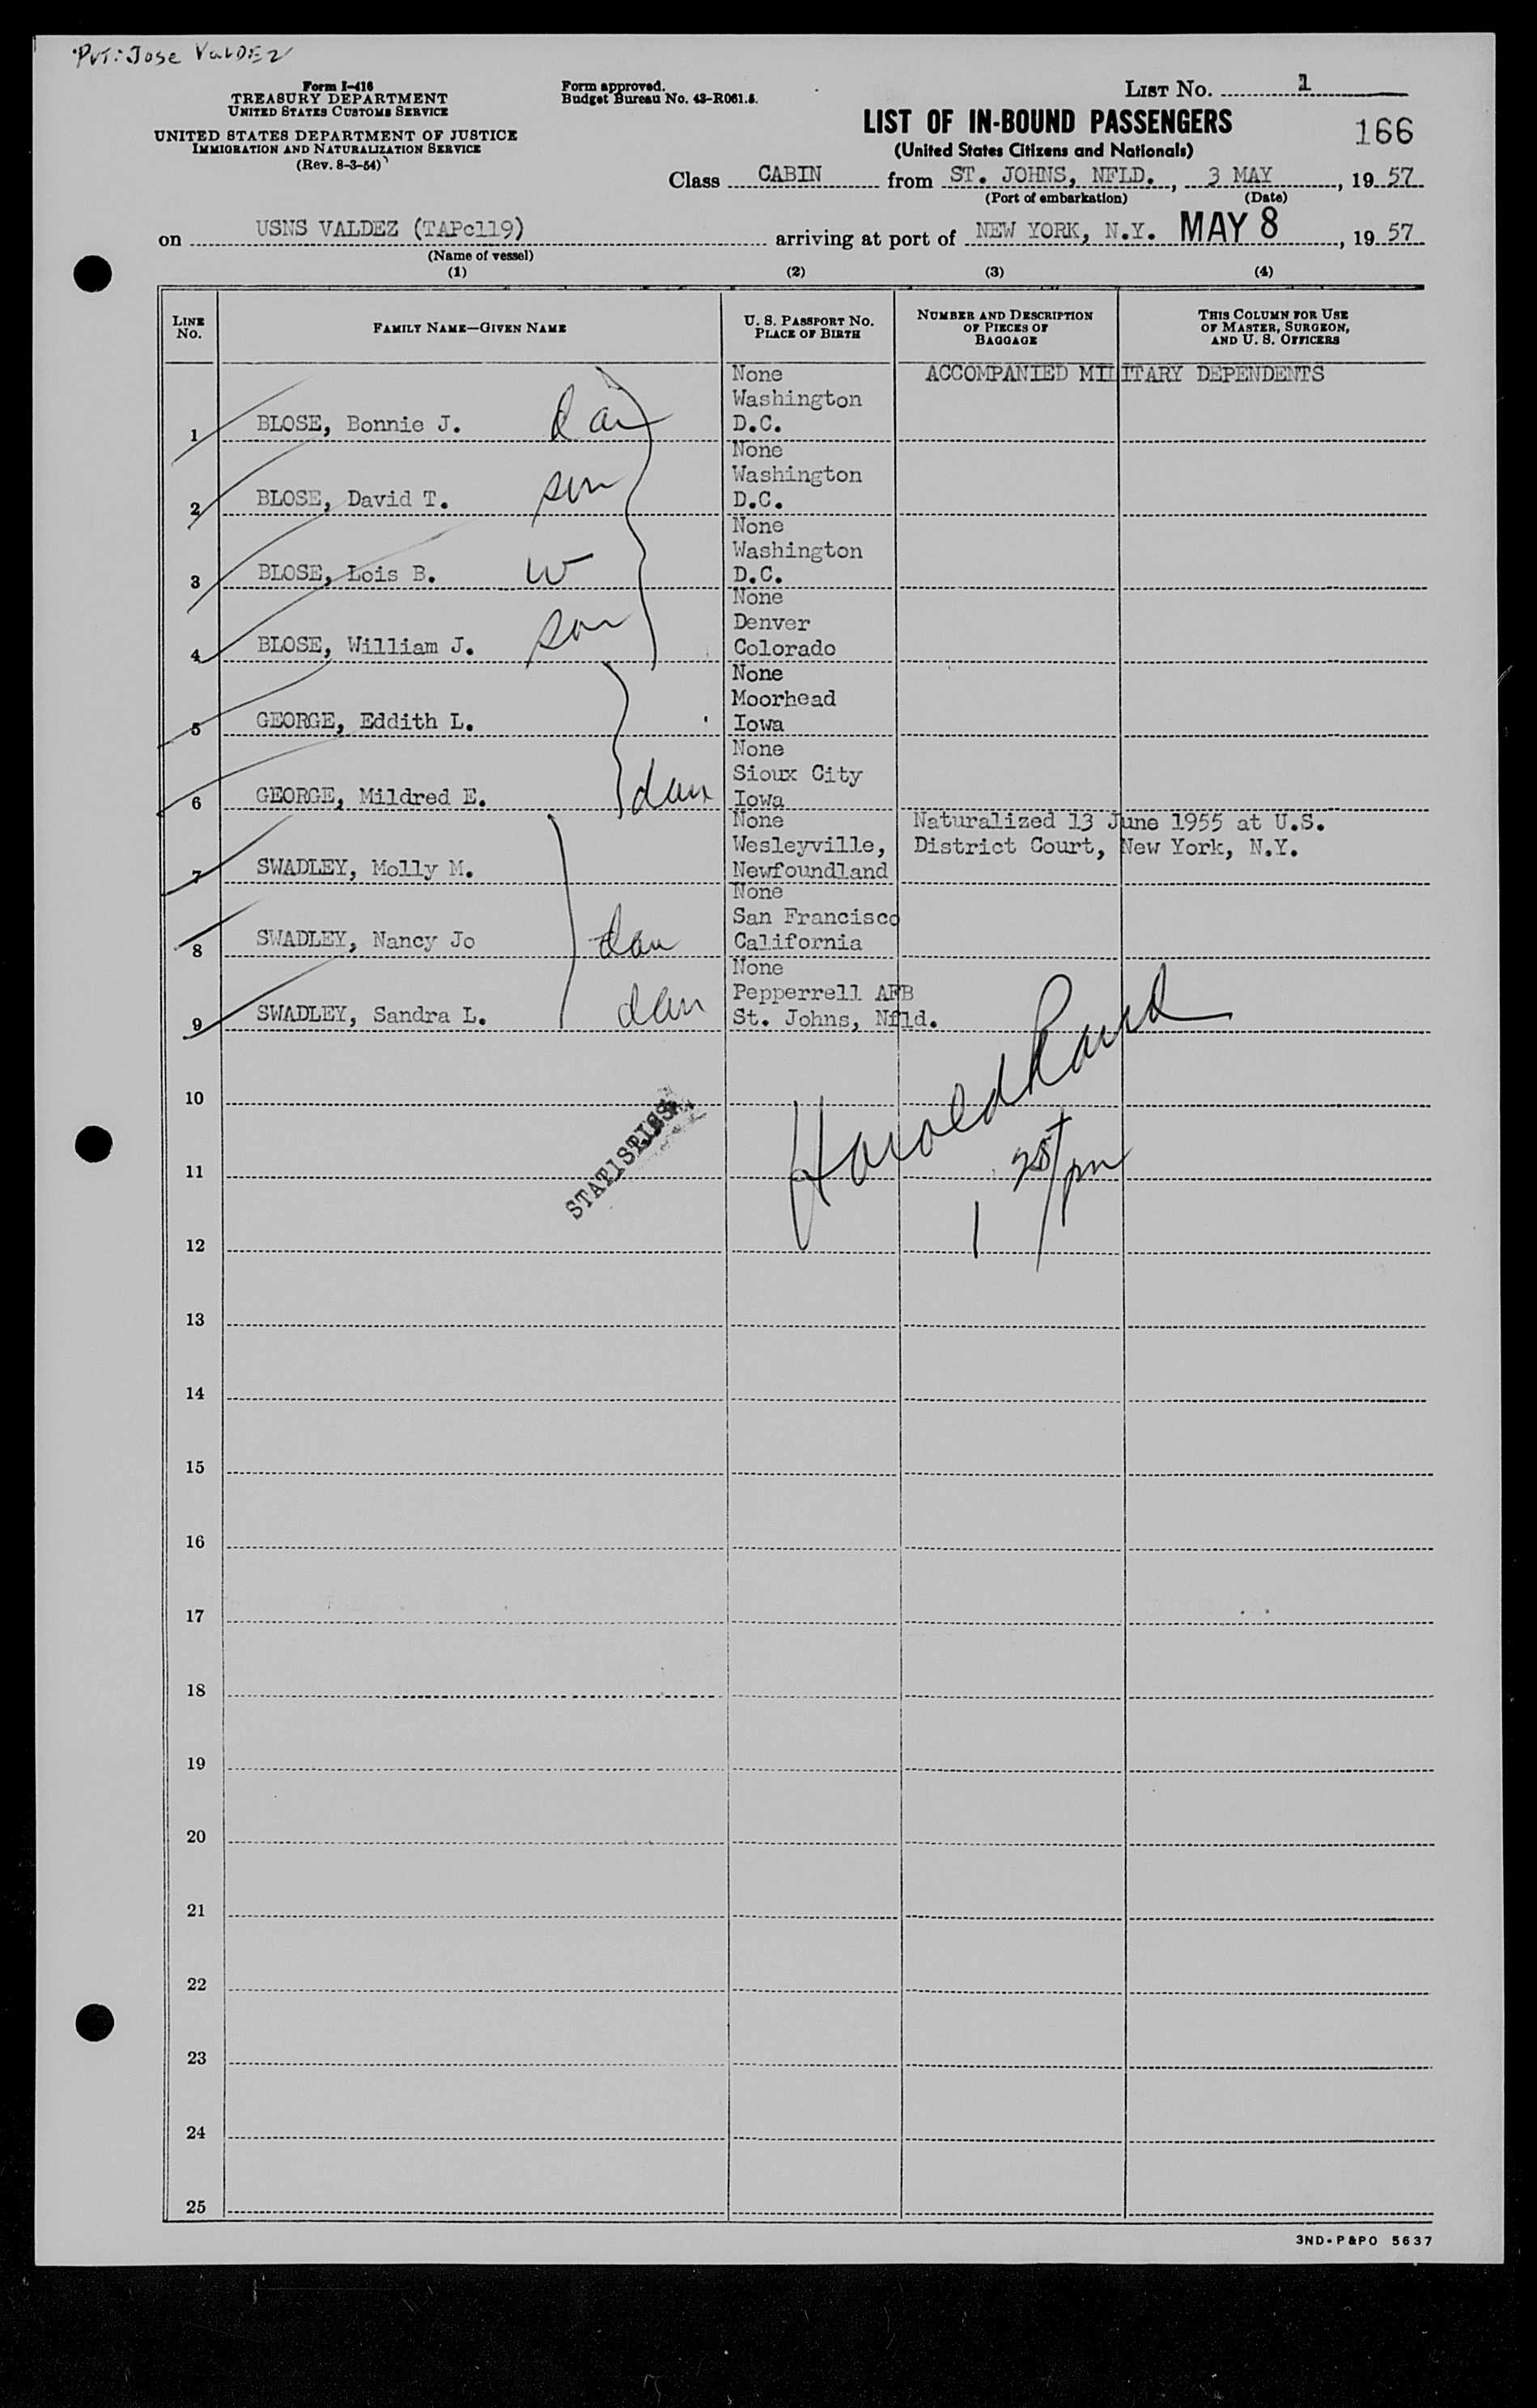 Pvt: Jose Valdez
Form I-416
TREASURY DEPARTMENT
UNITED STATES CUSTOMS SERVICE
UNITED STATES DEPARTMENT OF JUSTICE
IMMIGRATION AND NATURALIZATION SERVICE
(Rev. 8-3-54)
Form approved.
Budget Bureau No. 43-R061.5.
LIST NO. 1
LIST OF IN-BOUND PASSENGERS
166
(United States Citizens and Nationals)
Class CABIN from ST. JOHNS, NFLD., 3 MAY, 1957
(Port of embarkation) (Date)
on USNS VALDEZ (TAPc119) arriving at port of NEW YORK, N.Y. MAY 8, 1957
(Name of vessel)
(1) (2) (3) (4)
LINE NO.
FAMILY NAME—GIVEN NAME
U. S. PASSPORT NO.
PLACE OF BIRTH
NUMBER AND DESCRIPTION
OF PIECES OF
BAGGAGE
THIS COLUMN FOR USE
OF MASTER, SURGEON,
AND U. S. OFFICERS
None ACCOMPANIED MILITARY DEPENDENTS
Washington
1 BLOSE, Bonnie J. dau D.C.
None
Washington
2 BLOSE, David T. son D.C.
None
Washington
3 BLOSE, Lois B. W D.C.
None
Denver
4 BLOSE, William J. son Colorado
None
Moorhead
5 GEORGE, Eddith L. Iowa
None
Sioux City
6 GEORGE, Mildred E. dau Iowa
None Naturalized 13 June 1955 at U.S.
Wesleyville, District Court, New York, N.Y.
7 SWADLEY, Molly M. Newfoundland
None
San Francisco
8 SWADLEY, Nancy Jo dau California
None
Pepperrell AFB
9 SWADLEY, Sandra L. dau St. Johns, Nfld.
Harold
10
STATISTICS
11
1 25/pm
12
13
14
15
16
17
18
19
20
21
22
23
24
25
3ND-P&PO 5637